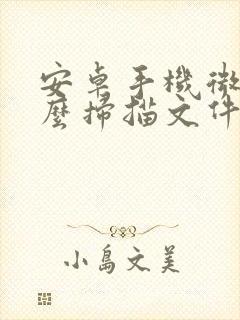 安卓手機微
麼掃描文件
小島文美